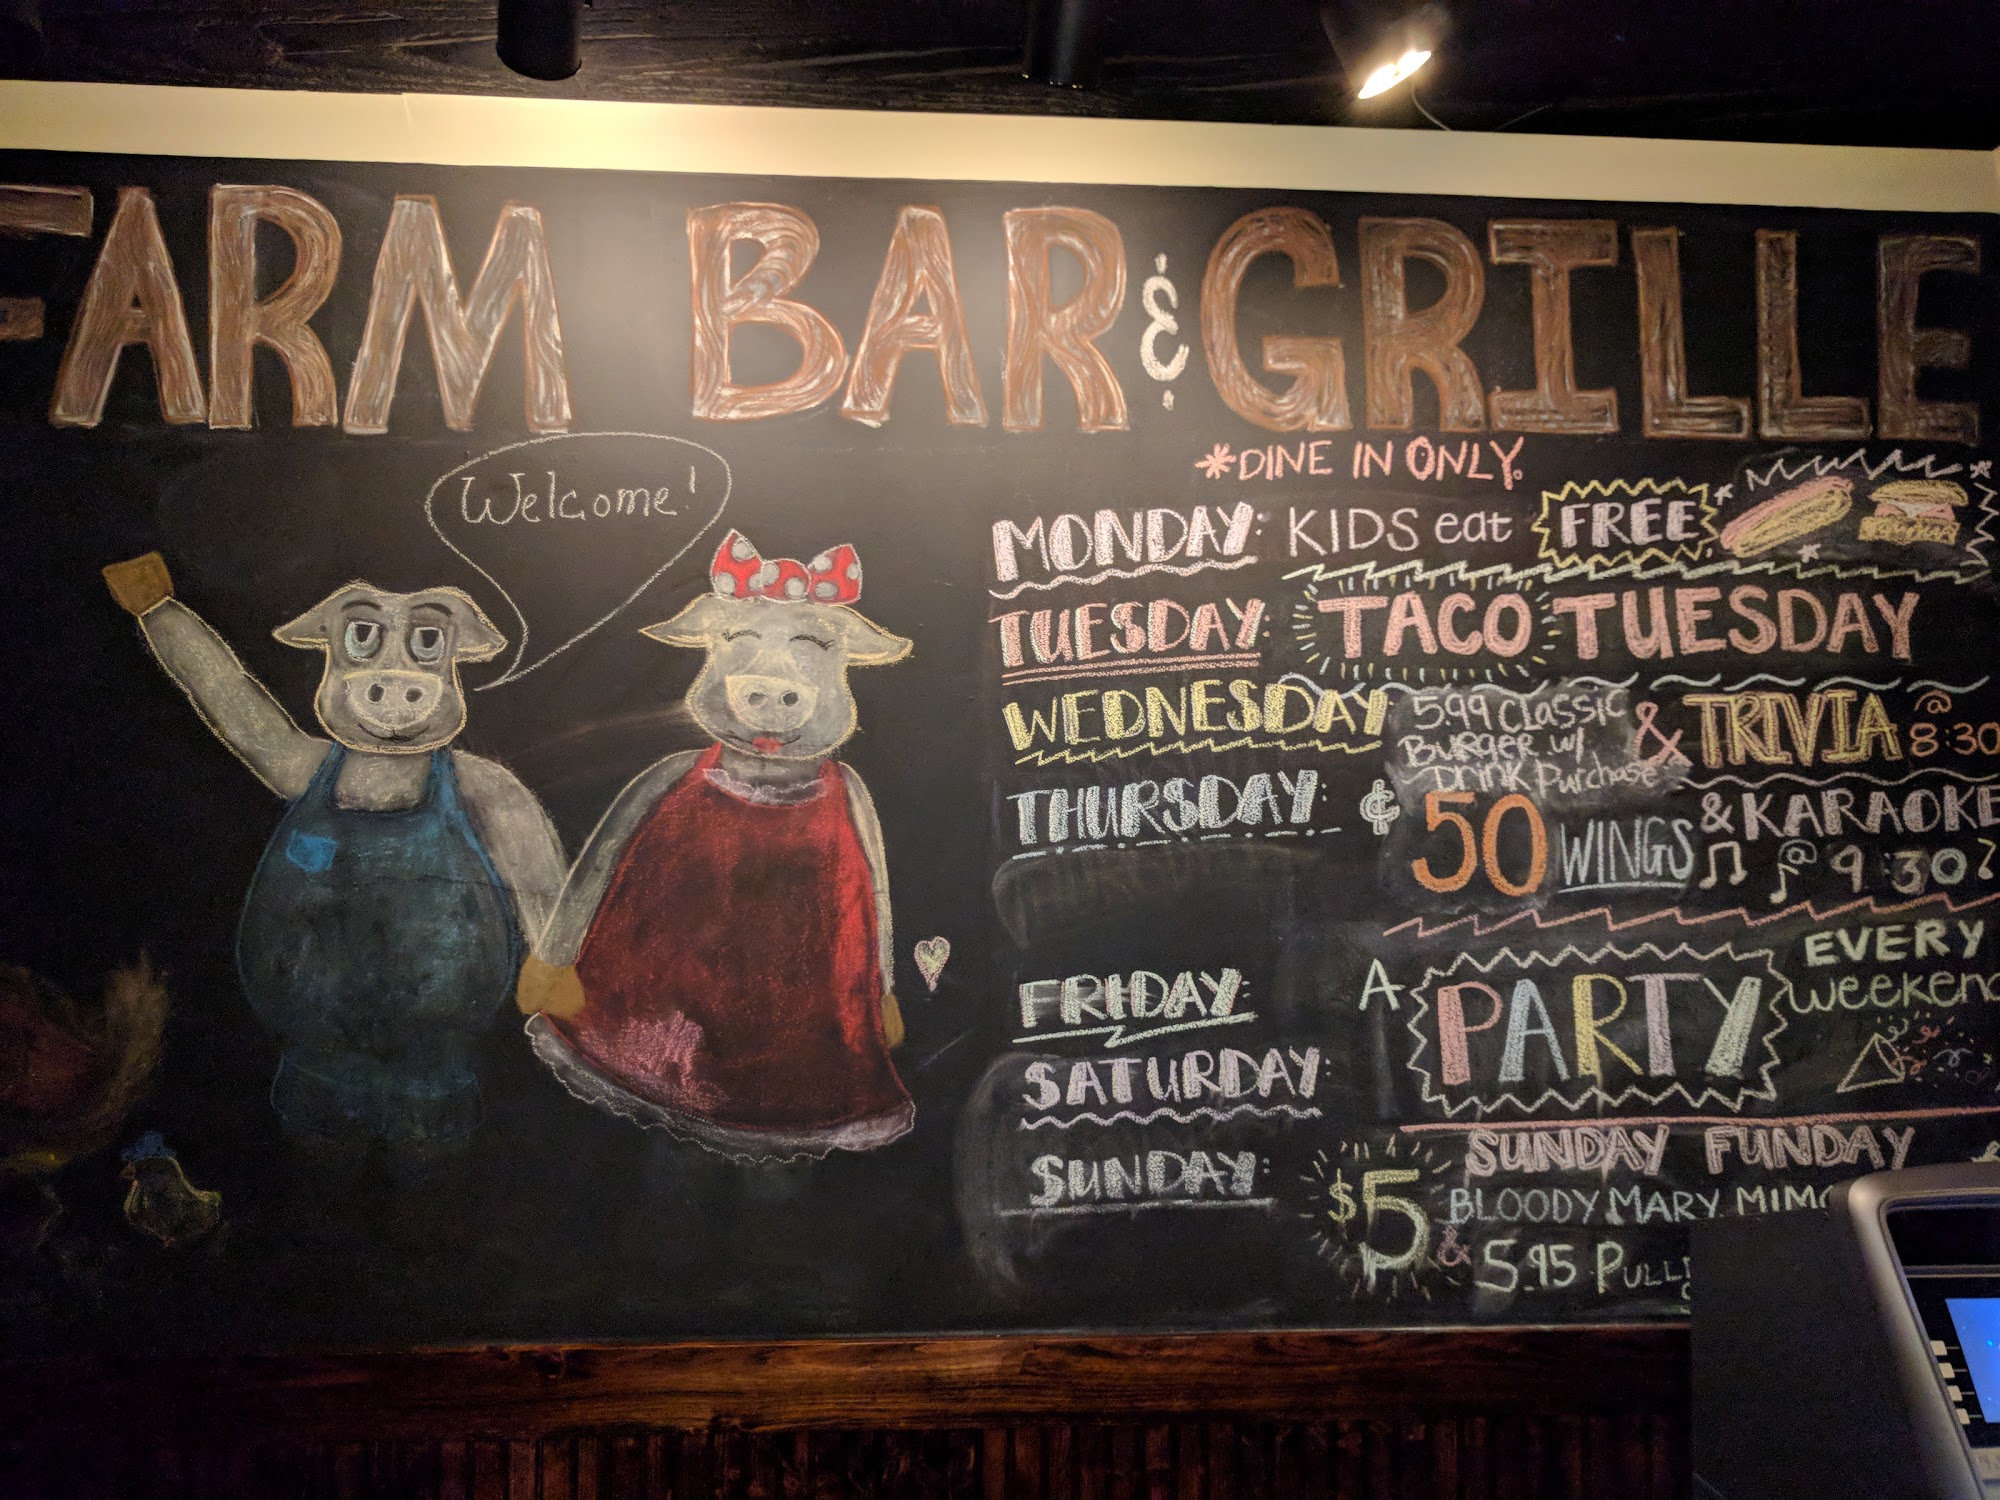 FARM BAR & GRILLE
Welcome!
*DINE IN ONLY.
MONDAY: KIDS eat FREE
TUESDAY: TACO TUESDAY
WEDNESDAY: 5.99 Classic
Burger w/
Drink Purchase
& TRIVIA @
8:30
THURSDAY: ¢ 50 WINGS & KARAOKE
@ 9:30
FRIDAY:
SATURDAY:
A PARTY EVERY
weekend
SUNDAY: SUNDAY FUNDAY
$5 BLOODY MARY
& 5.95